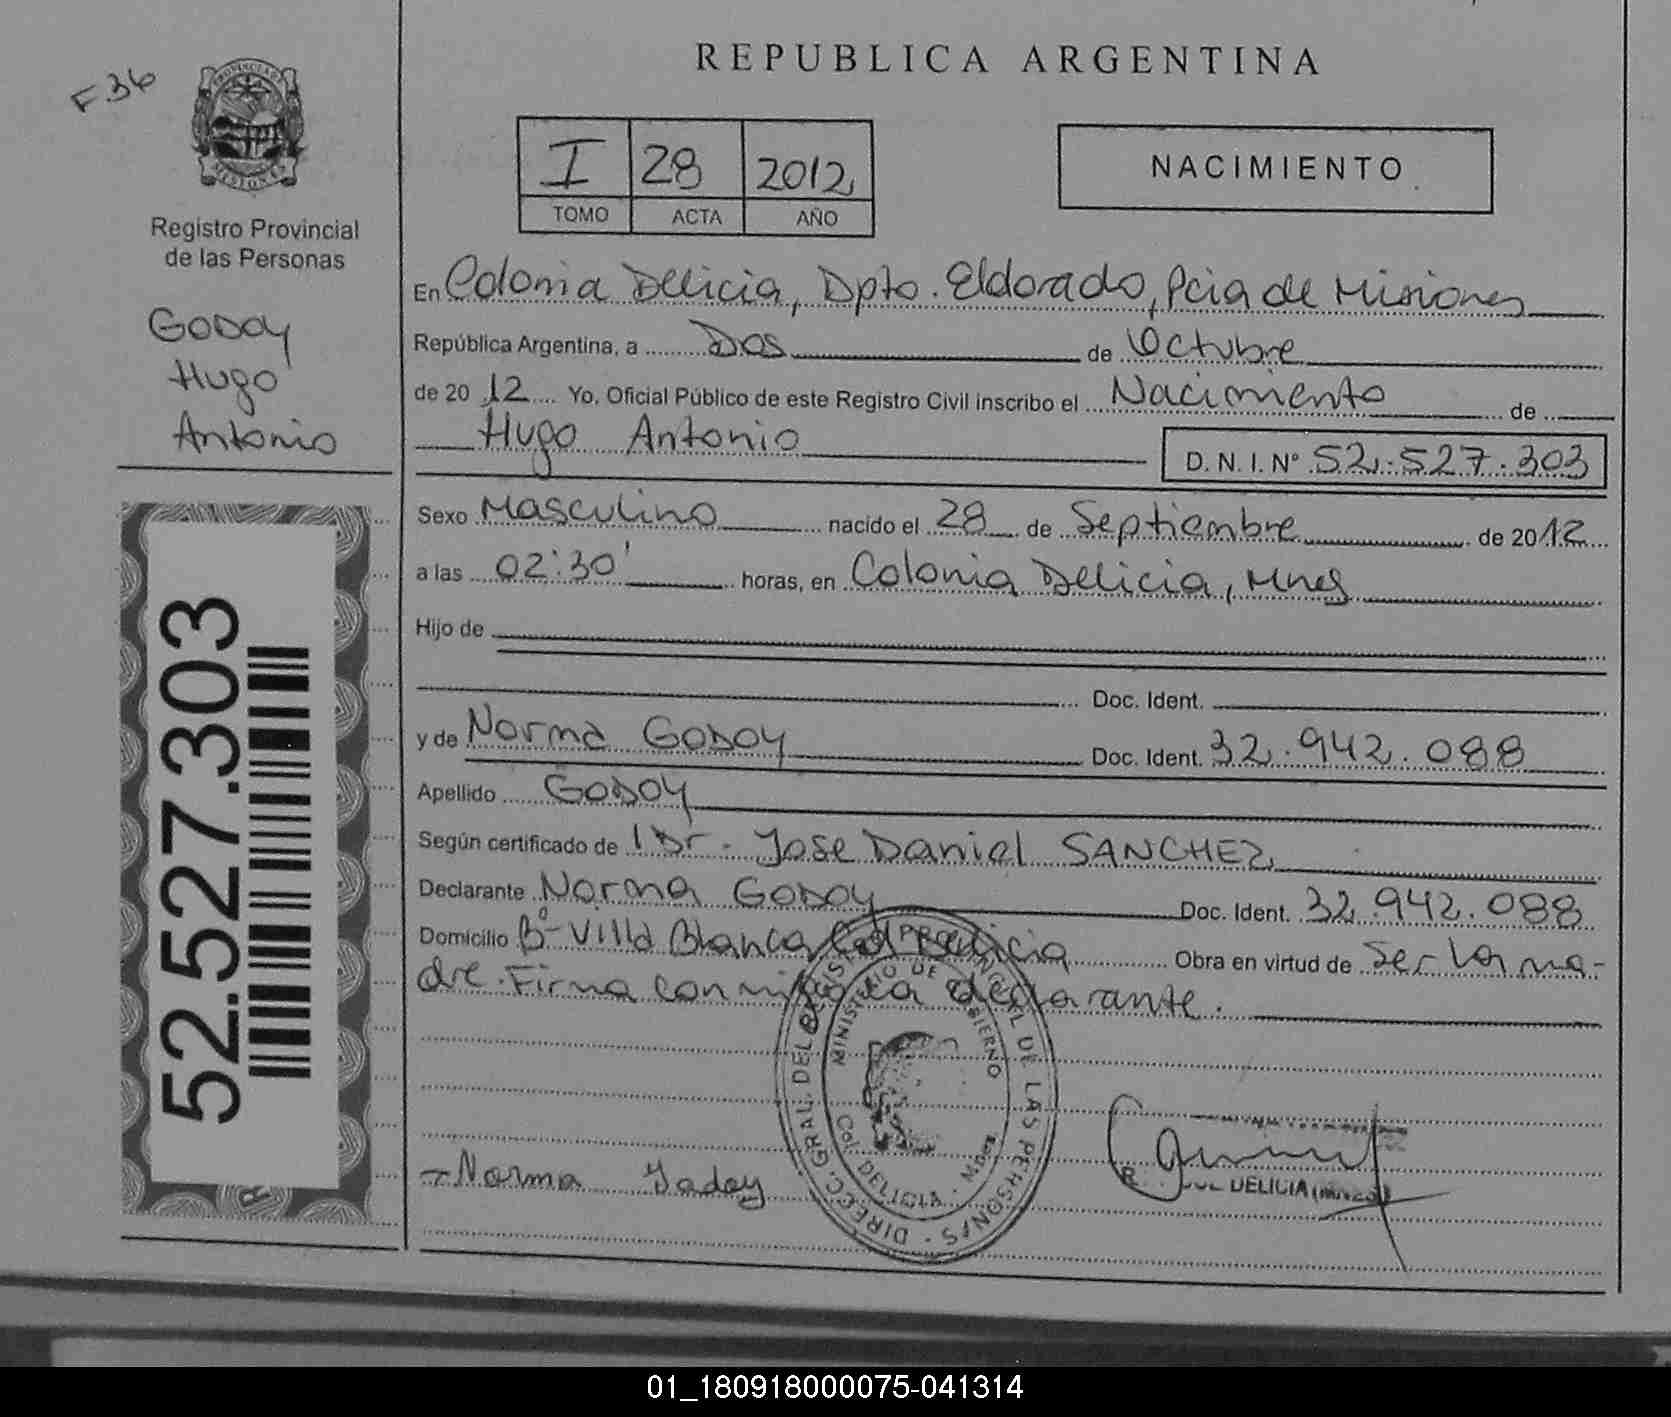 REPUBLICA ARGENTINA
F36
PROVINCIA DE MISIONES
Registro Provincial
de las Personas
GODOY
Hugo
Antonio
52.527.303
I 28 2012
TOMO ACTA AÑO
NACIMIENTO
En Colonia Delicia, Dpto. Eldorado, Pcia de Misiones
República Argentina, a Dos de Octubre
de 20 12 Yo, Oficial Público de este Registro Civil inscribo el Nacimiento de
Hugo Antonio D. N. I. Nº 52.527.303
Sexo Masculino nacido el 28 de Septiembre de 2012
a las 02:30' horas, en Colonia Delicia, Mnes
Hijo de
Doc. Ident.
y de Norma GODOY Doc. Ident. 32.942.088
Apellido GODOY
Según certificado de 1 Dr. Jose Daniel SANCHEZ
Declarante Norma GODOY Doc. Ident. 32.942.088
Domicilio Bº Villa Blanca Col Delicia Obra en virtud de Ser la ma-
dre. Firma conmigo la declarante.
DIRECC. GRAL. DEL REGISTRO PROVINCIAL DE LAS PERSONAS
MINISTERIO DE GOBIERNO
Col. DELICIA - Mnes
Norma Godoy
DELICIA (MNES)
01_180918000075-041314